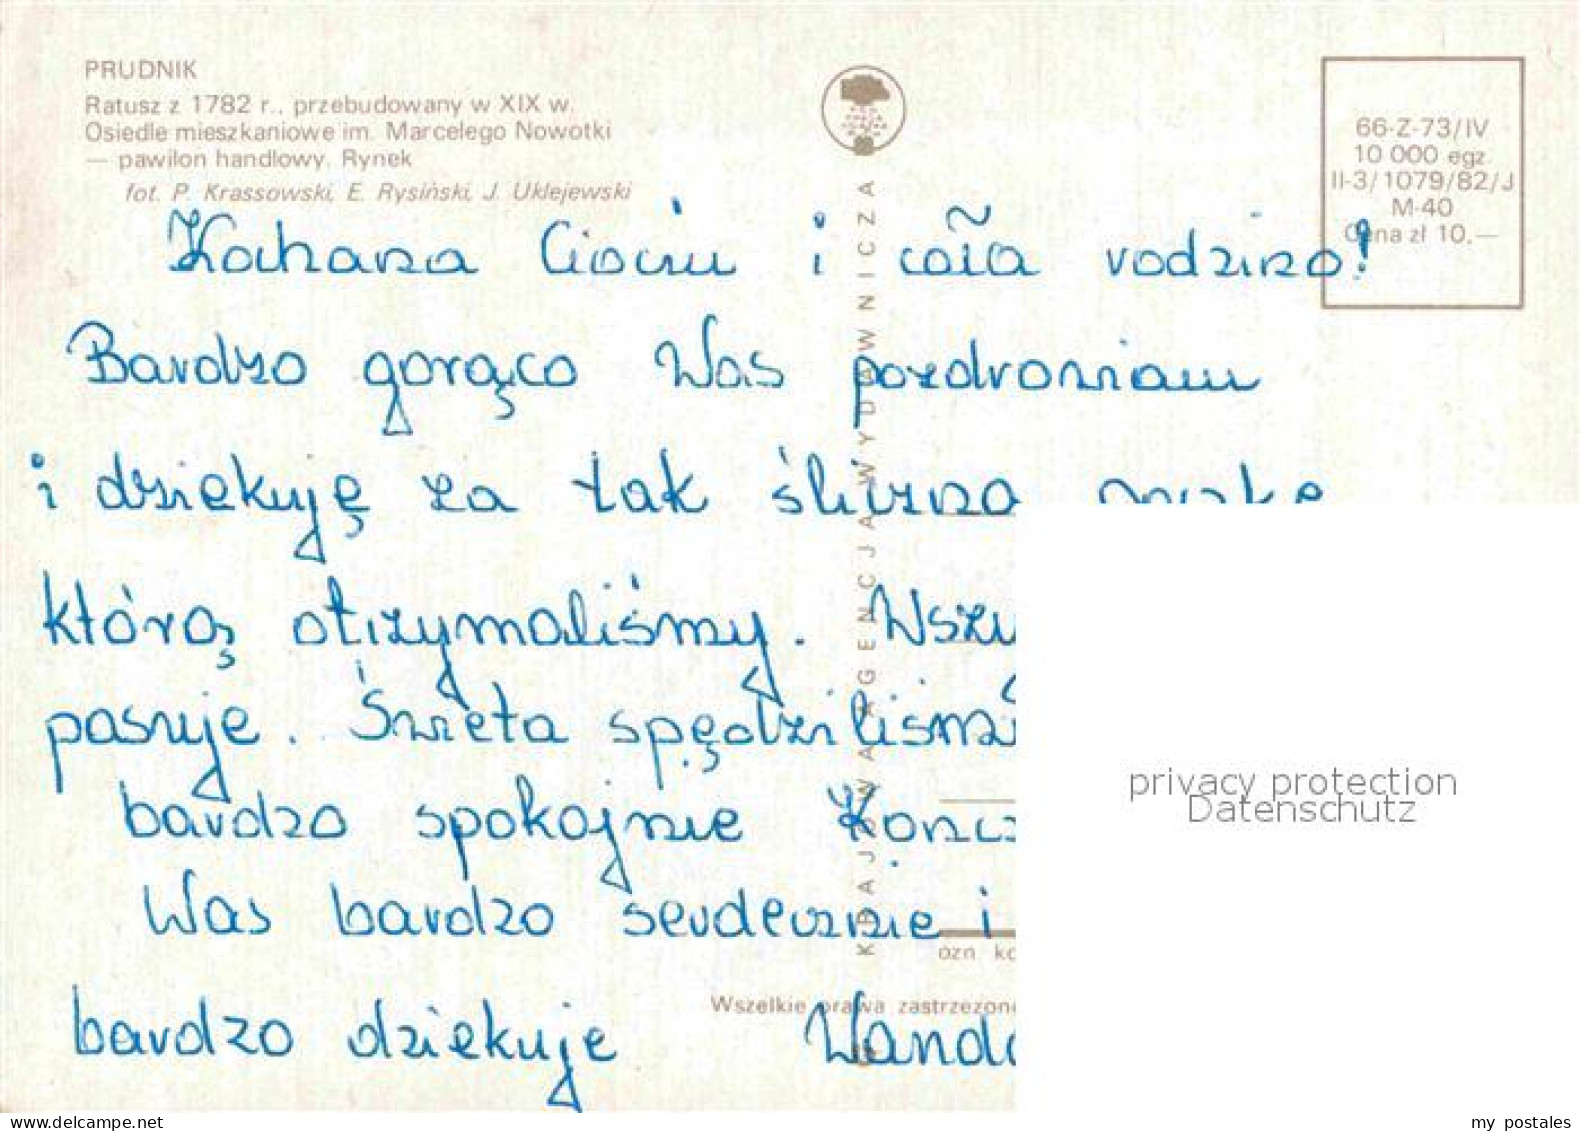 PRUDNIK
Ratusz z 1782 r., przebudowany w XIX w.
Osiedle mieszkaniowe im. Marcelego Nowotki
— pawilon handlowy. Rynek
fot. P. Krassowski, E. Rysiński, J. Uklejewski
66-Z-73/IV
10 000 egz.
II-3/1079/82/J
M-40
Cena zł 10,—
KRAJOWA AGENCJA WYDAWNICZA
Kochana Ciociu i cała rodzino!
Bardzo gorąco Was pozdrawiam
i dziękuję za tak śliczną
którą otrzymaliśmy.
pasuje. Święta spędziliśmy
bardzo spokojnie
Was bardzo serdecznie i
bardzo dziękuje Wanda
ozn.
Wszelkie prawa zastrzeżone
privacy protection
Datenschutz
my postales